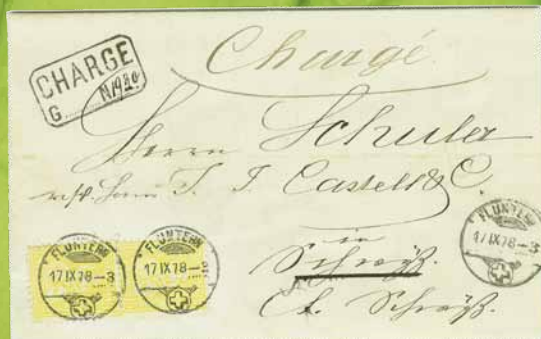 Chargé
CHARGE
G N 1930
Herrn Schuler
J. J. Castell & C.
in
Schwyz.
Ct. Schwyz.
FLUNTERN
17 IX 78-3
FLUNTERN
17 IX 78-3
FLUNTERN
17 IX 78-3